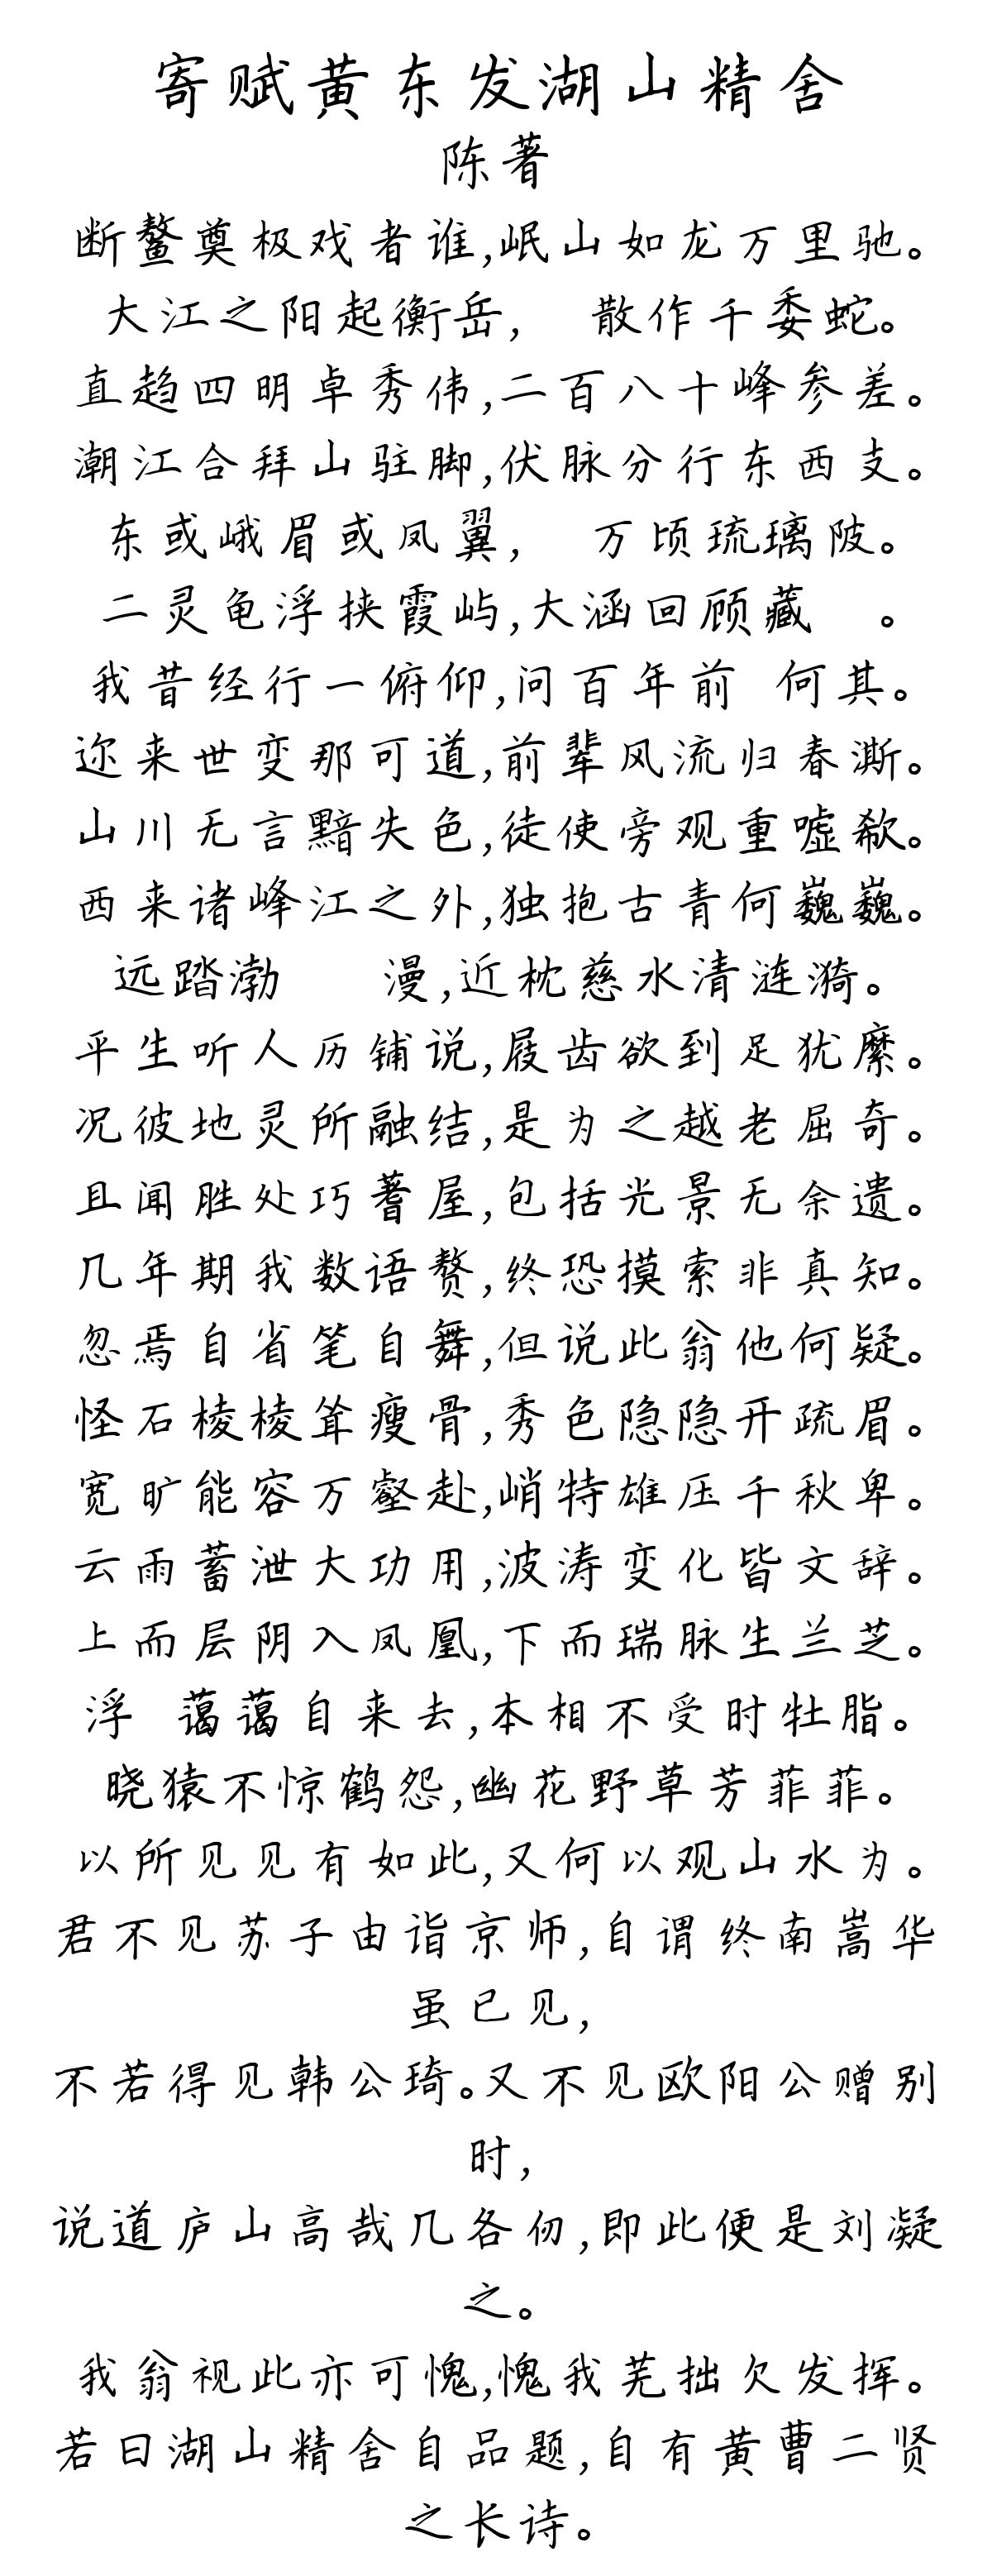 寄赋黄东发湖山精舍
陈著
断鳌奠极戏者谁,岷山如龙万里驰。
大江之阳起衡岳,　散作千委蛇。
直趋四明卓秀伟,二百八十峰参差。
潮江合拜山驻脚,伏脉分行东西支。
东或峨眉或凤翼,　万顷琉璃陂。
二灵龟浮挟霞屿,大涵回顾藏　。
我昔经行一俯仰,问百年前 何其。
迩来世变那可道,前辈风流归春澌。
山川无言黯失色,徒使旁观重嘘欷。
西来诸峰江之外,独抱古青何巍巍。
远踏渤　　漫,近枕慈水清涟漪。
平生听人历铺说,屐齿欲到足犹縻。
况彼地灵所融结,是为之越老屈奇。
且闻胜处巧著屋,包括光景无余遗。
几年期我数语赘,终恐摸索非真知。
忽焉自省笔自舞,但说此翁他何疑。
怪石棱棱耸瘦骨,秀色隐隐开疏眉。
宽旷能容万壑赴,峭特雄压千秋卑。
云雨蓄泄大功用,波涛变化皆文辞。
上而层阴入凤凰,下而瑞脉生兰芝。
浮　蔼蔼自来去,本相不受时牡脂。
晓猿不惊鹤怨,幽花野草芳菲菲。
以所见见有如此,又何以观山水为。
君不见苏子由诣京师,自谓终南嵩华
虽已见,
不若得见韩公琦。又不见欧阳公赠别
时,
说道庐山高哉几各仞,即此便是刘凝
之。
我翁视此亦可愧,愧我芜拙欠发挥。
若曰湖山精舍自品题,自有黄曹二贤
之长诗。